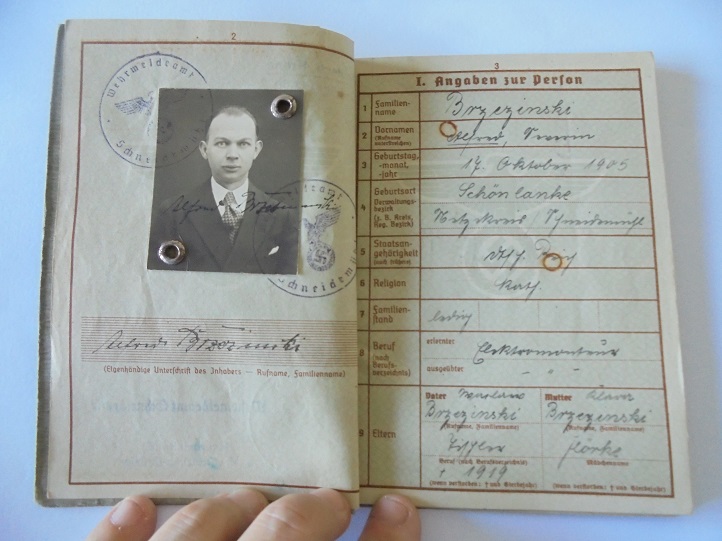 2
Wehrmeldeamt
Schneidemühl
Alfred Brzezinski
Alfred Brzezinski
(Eigenhändige Unterschrift des Inhabers — Rufname, Familienname)
3
I. Angaben zur Person
1 Familien-
name
Brzezinski
2 Vornamen
(Rufname
unterstreichen)
Alfred,
3 Geburtstag,
-monat,
-jahr
17. Oktober 1905
4 Geburtsort
Verwaltungs-
bezirk
(z. B. Kreis,
Reg. Bezirk)
Schönlanke
Netzekreis Schneidemühl
5 Staatsan-
gehörigkeit
(auch frühere)
Reich
6 Religion
Kath.
7 Familien-
stand
ledig
8 Beruf
(nach
Berufs-
verzeichnis)
erlernter
Elektromonteur
ausgeübter
" "
9 Eltern
Vater
Brzezinski
(Rufname, Familienname)
Tischler
Beruf (nach Berufsverzeichnis)
† 1919
(wenn verstorben: † und Sterbejahr)
Mutter Klara
Brzezinski
(Rufname, Familienname)
Mädchenname
(wenn verstorben: † und Sterbejahr)